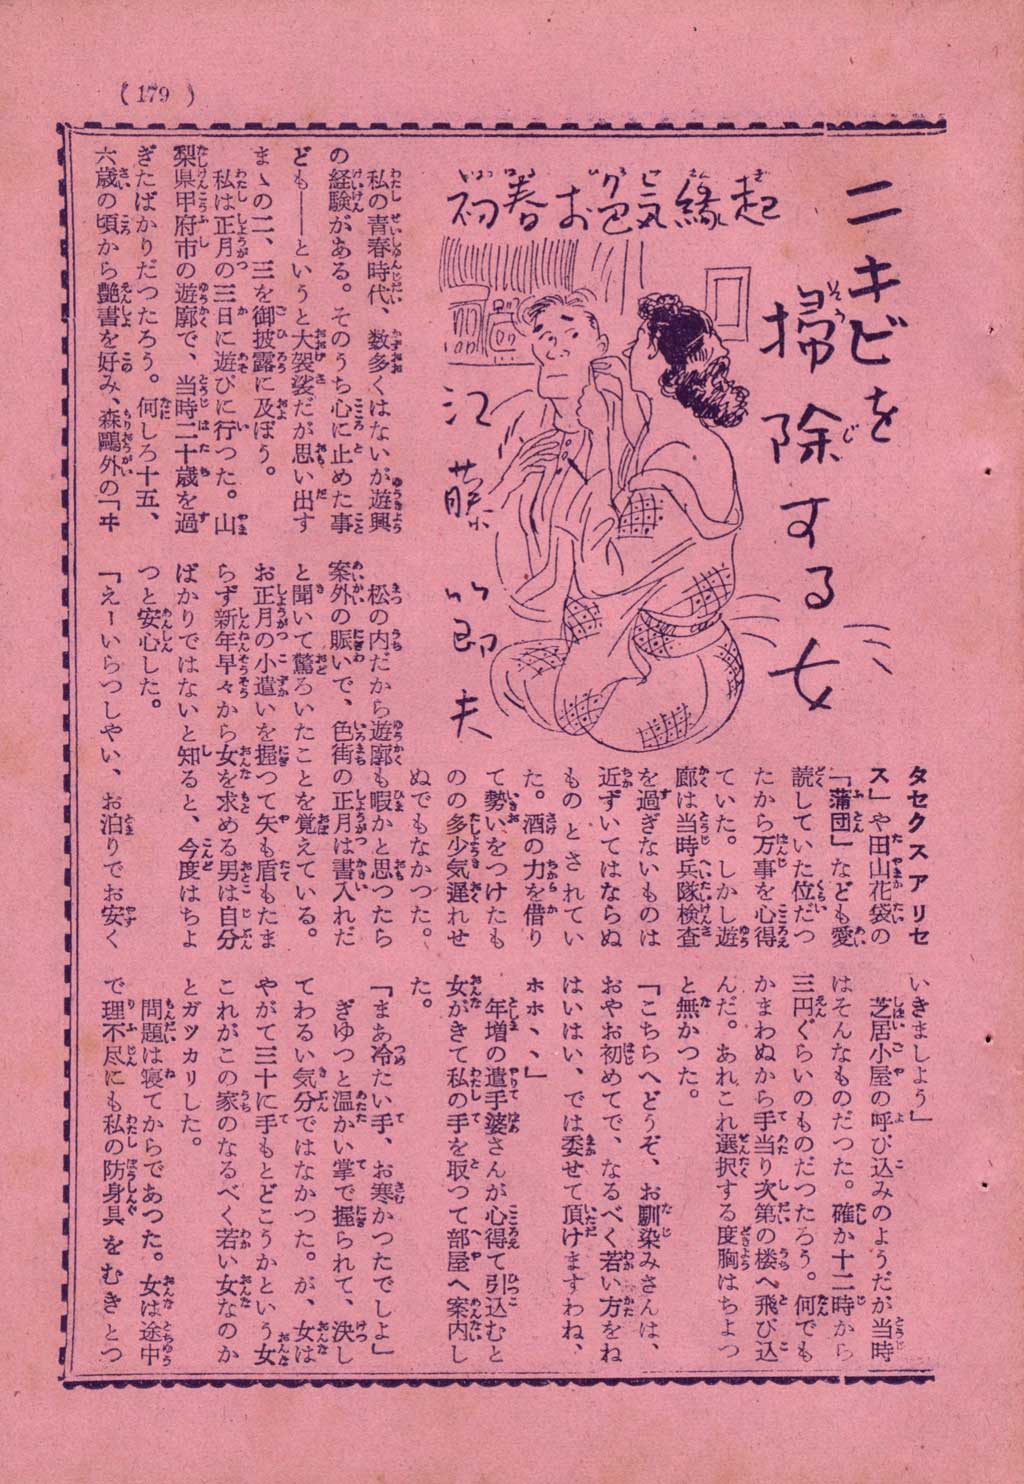 (179)
初春お色気縁起
ニキビを
掃除する女
江藤竹郎夫
私の青春時代、数多くはないが遊興
の経験がある。そのうち心に止めた事
ども――というと大袈裟だが思い出す
まゝの二、三を御披露に及ぼう。
私は正月の三日に遊びに行つた。山
梨県甲府市の遊廓で、当時二十歳を過
ぎたばかりだつたろう。何しろ十五、
六歳の頃から艶書を好み、森鷗外の「ヰ
タセクスアリセ
ス」や田山花袋の
「蒲団」なども愛
読していた位だつ
たから万事を心得
ていた。しかし遊
廓は当時兵隊検査
を過ぎないものは
近ずいてはならぬ
ものとされてい
た。酒の力を借り
て勢いをつけたも
のの多少気遅れせ
ぬでもなかつた。
松の内だから遊廓も暇かと思つたら
案外の賑いで、色街の正月は書入れだ
と聞いて驚ろいたことを覚えている。
お正月の小遣いを握つて矢も盾もたま
らず新年早々から女を求める男は自分
ばかりではないと知ると、今度はちよ
つと安心した。
「えーいらつしやい、お泊りでお安く
いきましよう」
芝居小屋の呼び込みのようだが当時
はそんなものだつた。確か十二時から
三円ぐらいのものだつたろう。何でも
かまわぬから手当り次第の楼へ飛び込
んだ。あれこれ選択する度胸はちよつ
と無かつた。
「こちらへどうぞ、お馴染みさんは、
おやお初めてで、なるべく若い方をね
はいはい、では委せて頂けますわね、
ホホヽヽ」
年増の遣手婆さんが心得て引込むと
女がきて私の手を取つて部屋へ案内し
た。
「まあ冷たい手、お寒かつたでしよ」
ぎゆつと温かい掌で握られて、決し
てわるい気分ではなかつた。が、女は
やがて三十に手もとどこうかという女
これがこの家のなるべく若い女なのか
とガツカリした。
問題は寝てからであつた。女は途中
で理不尽にも私の防身具をむきとつ